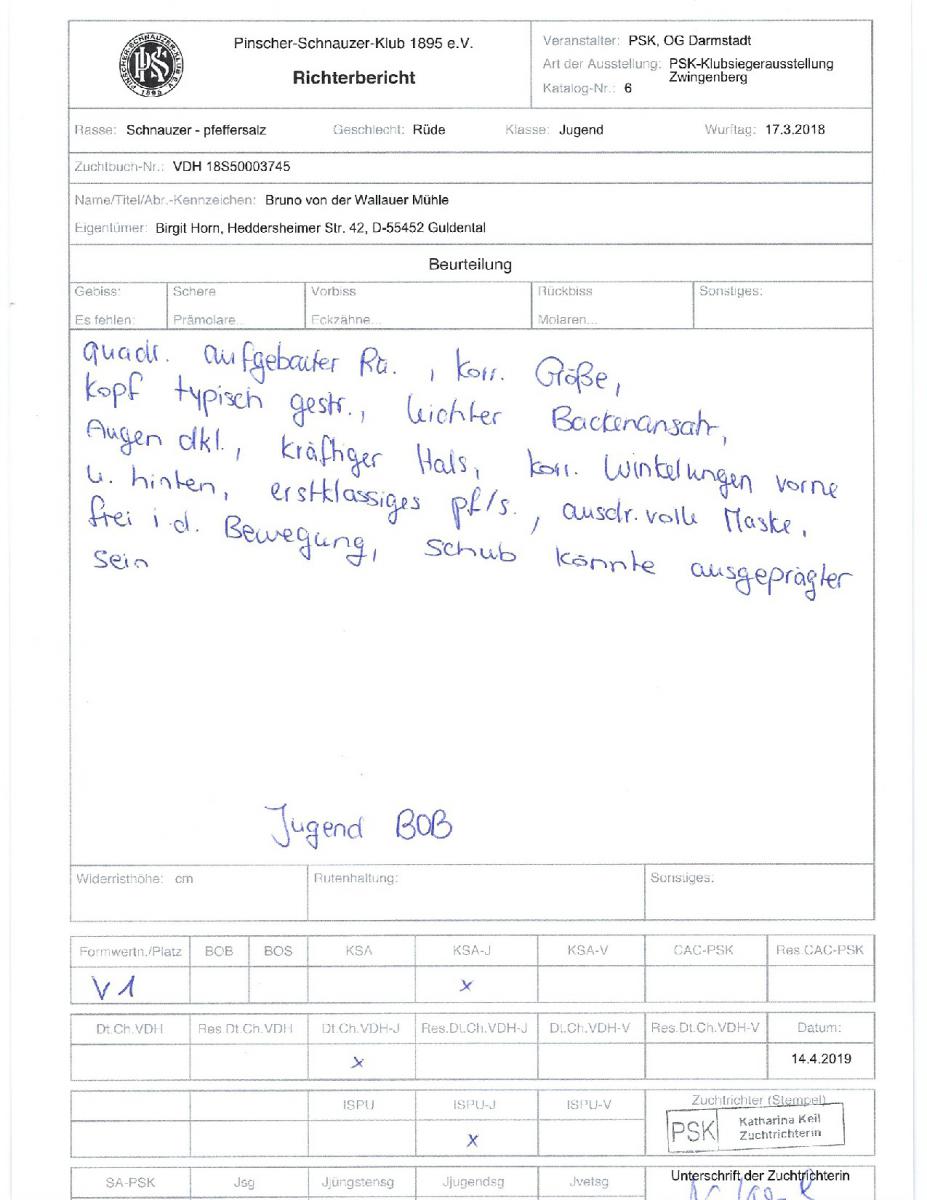 Pinscher-Schnauzer-Klub 1895 e.V.
Richterbericht
Veranstalter: PSK, OG Darmstadt
Art der Ausstellung: PSK-Klubsiegerausstellung
Zwingenberg
Katalog-Nr.: 6
PINSCHER-SCHNAUZER-KLUB E.V.
PSK
1895
Rasse: Schnauzer - pfeffersalz Geschlecht: Rüde Klasse: Jugend Wurftag: 17.3.2018
Zuchtbuch-Nr.: VDH 18S50003745
Name/Titel/Abr.-Kennzeichen: Bruno von der Wallauer Mühle
Eigentümer: Birgit Horn, Heddersheimer Str. 42, D-55452 Guldental
Beurteilung
Gebiss: Schere Vorbiss Rückbiss Sonstiges:
Es fehlen: Prämolare... Eckzähne... Molaren...
quadr. aufgebauter Rü. , korr. Größe,
Kopf typisch gestr., leichter Backenansatz,
Augen dkl., kräftiger Hals, korr. Winkelungen vorne
u. hinten, erstklassiges pf/s., ausdr.volle Maske,
frei i.d. Bewegung, Schub könnte ausgeprägter
sein
Jugend BOB
Widerristhöhe: cm Rutenhaltung: Sonstiges:
Formwertn./Platz BOB BOS KSA KSA-J KSA-V CAC-PSK Res.CAC-PSK
V1 x
Dt.Ch.VDH Res.Dt.Ch.VDH Dt.Ch.VDH-J Res.Dt.Ch.VDH-J Dt.Ch.VDH-V Res.Dt.Ch.VDH-V Datum:
x 14.4.2019
ISPU ISPU-J ISPU-V Zuchtrichter (Stempel)
x PSK Katharina Keil
Zuchtrichterin
SA-PSK Jsg Jjüngstensg Jjugendsg Jvetsg Unterschrift der Zuchtrichterin